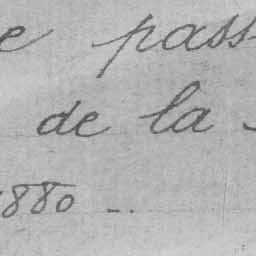 e pass
de la
1880 -.